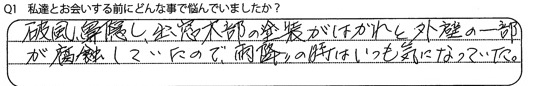 Q1 私達とお会いする前にどんな事で悩んでいましたか？
破風、鼻隠し、出窓木部の塗装がはがれと外壁の一部
が腐蝕していたので、雨降りの時はいつも気になっていた。